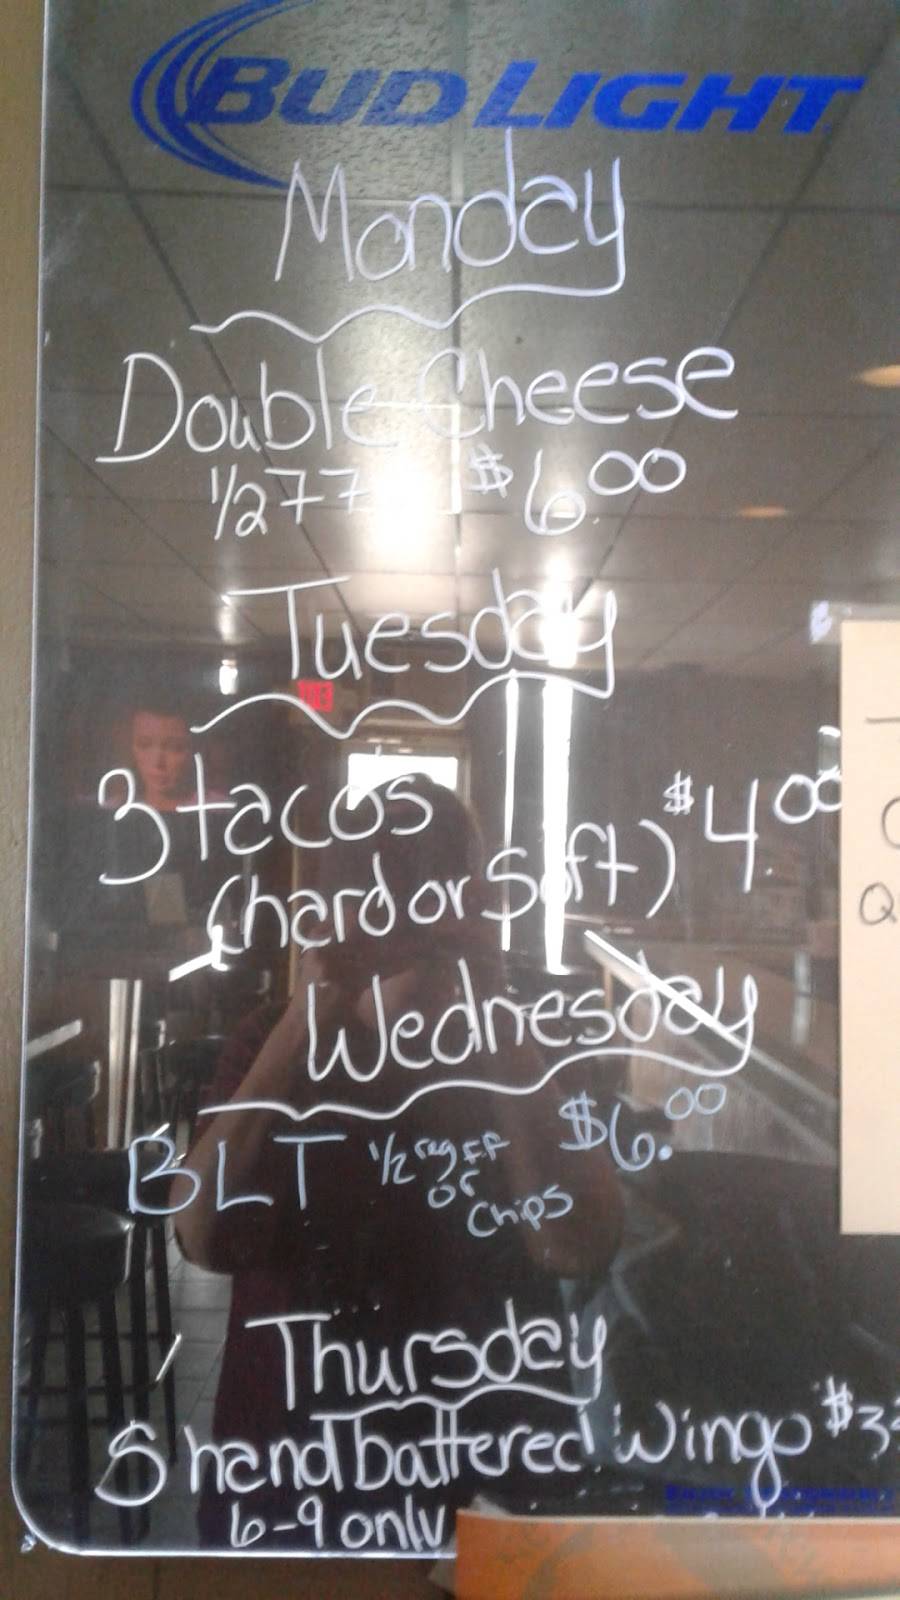 BUD LIGHT
Monday
Double Cheese
1/2 FF $6.00
Tuesday
3 tacos $4.00
(hard or Soft)
Wednesday
BLT 1/2 reg FF or Chips $6.00
Thursday
5 hand battered Wings $3
6-9 only